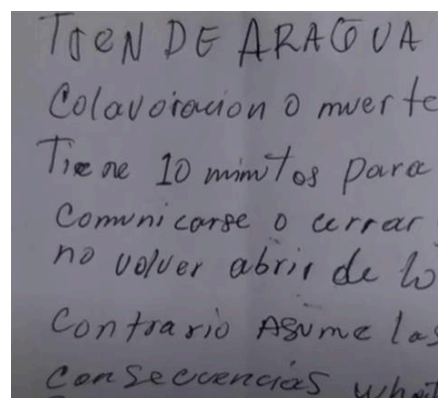 TREN DE ARAGUA
Colavoracion o muerte
Tiene 10 mintos para
comunicarse o cerrar
no volver abrir de lo
contrario Asume las
consecuencias what